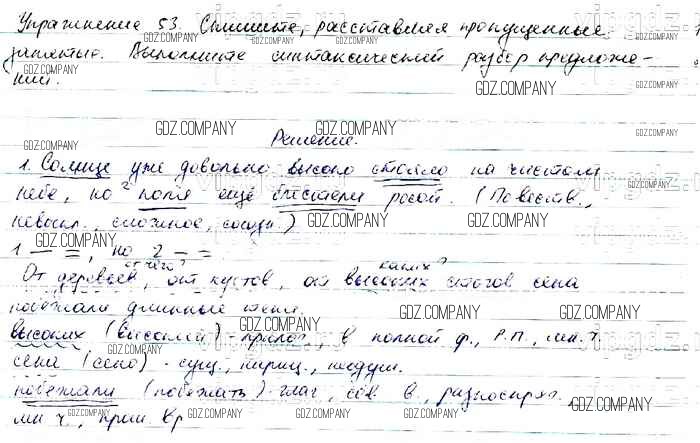 Упражнение 53. Спишите, расставляя пропущенные
запятые. Выполните синтаксический разбор предложе-
ний.
Решение.
1. Солнце уже довольно высоко стояло на чистом
небе, но поля ещё блестели росой. (Повеств.,
невоскл., сложное, союзн.)
1 — =, но 2 — =.
от чего? каких?
От деревьев, от кустов, от высоких стогов сена
побежали длинные тени.
высоких (высокий) - прилаг., в полной ф., Р.П., мн. ч.
сена (сено) - сущ., нариц., неодуш.
побежали (побежать) - глаг., сов. в., разноспряг.,
мн. ч., прош. вр
GDZ.COMPANY
vipgdz.com